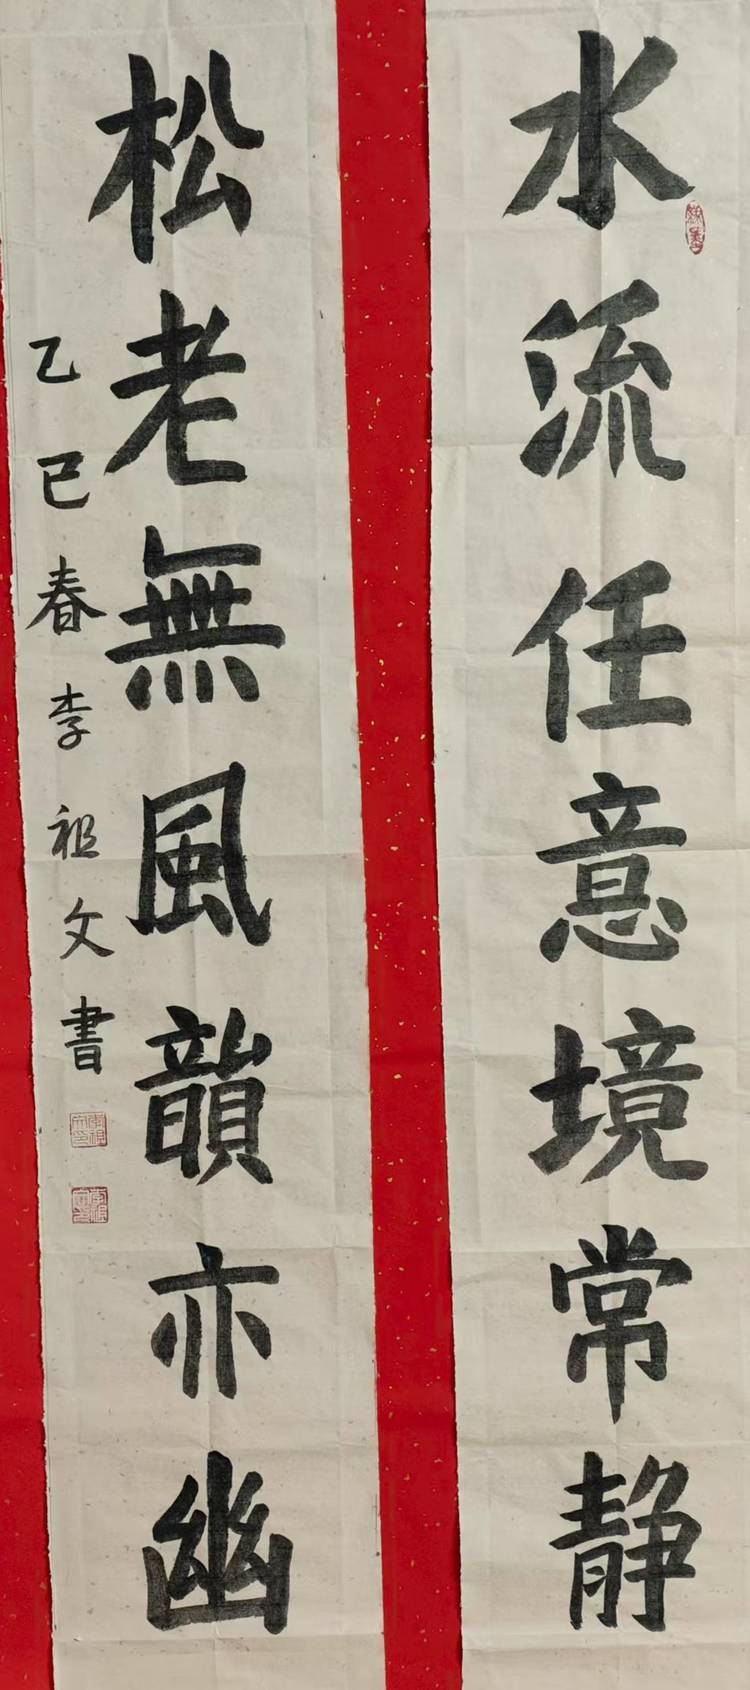 水流任意境常静
松老無風韻亦幽
乙巳春李祖文書